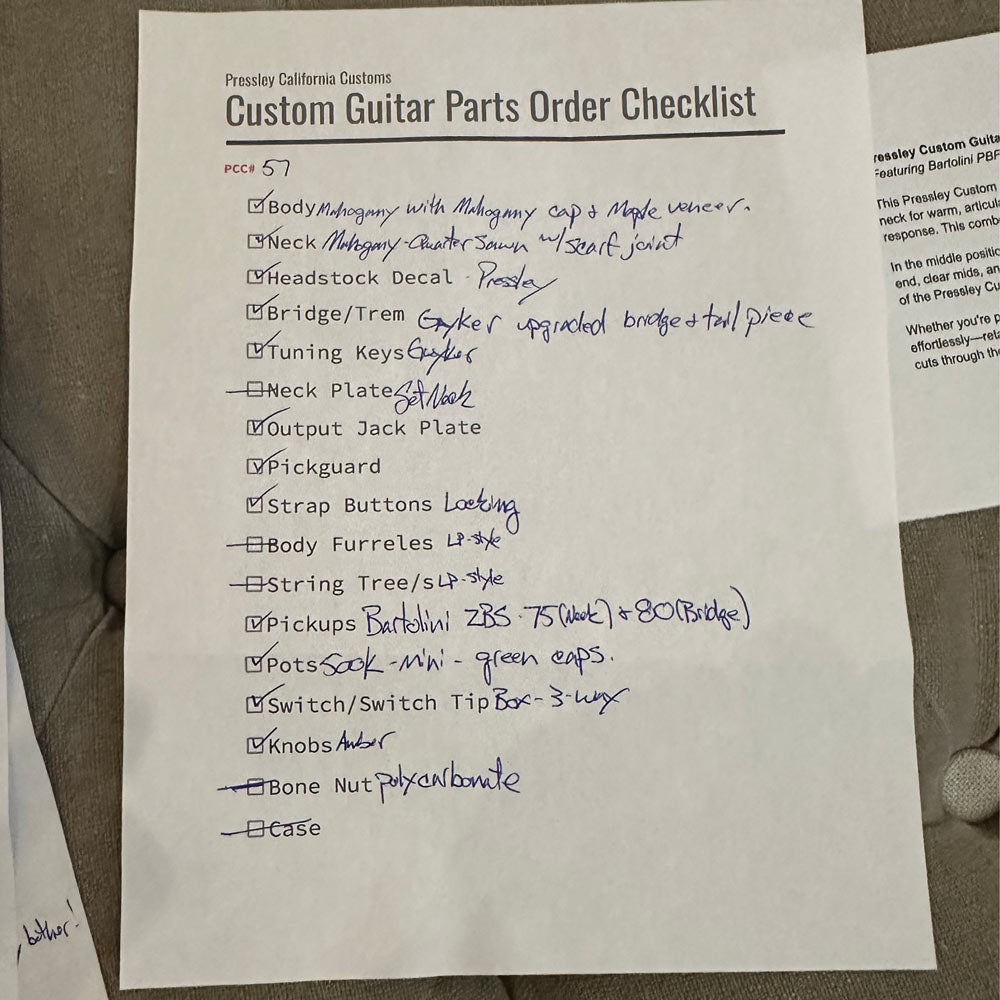 Pressley California Customs
Custom Guitar Parts Order Checklist
PCC# 57
Body Mahogany with Mahogany cap & Maple veneer.
Neck Mahogany-Quarter Sawn w/scarf joint
Headstock Decal - Pressley
Bridge/Trem Guyker upgraded bridge & tail piece
Tuning Keys Guyker
Neck Plate Set Neck
Output Jack Plate
Pickguard
Strap Buttons Locking
Body Furreles LP-style
String Tree/s LP-style
Pickups Bartolini ZBS-75(Neck) & 80(Bridge)
Pots 500k-mini-green caps.
Switch/Switch Tip Box-3-way
Knobs Amber
Bone Nut polycarbonate
Case
ressley Custom Guita
Featuring Bartolini PBF
This Pressley Custom
neck for warm, articula
response. This comb
In the middle positio
end, clear mids, an
of the Pressley Cu
Whether you're p
effortlessly—rela
cuts through th
, bother!